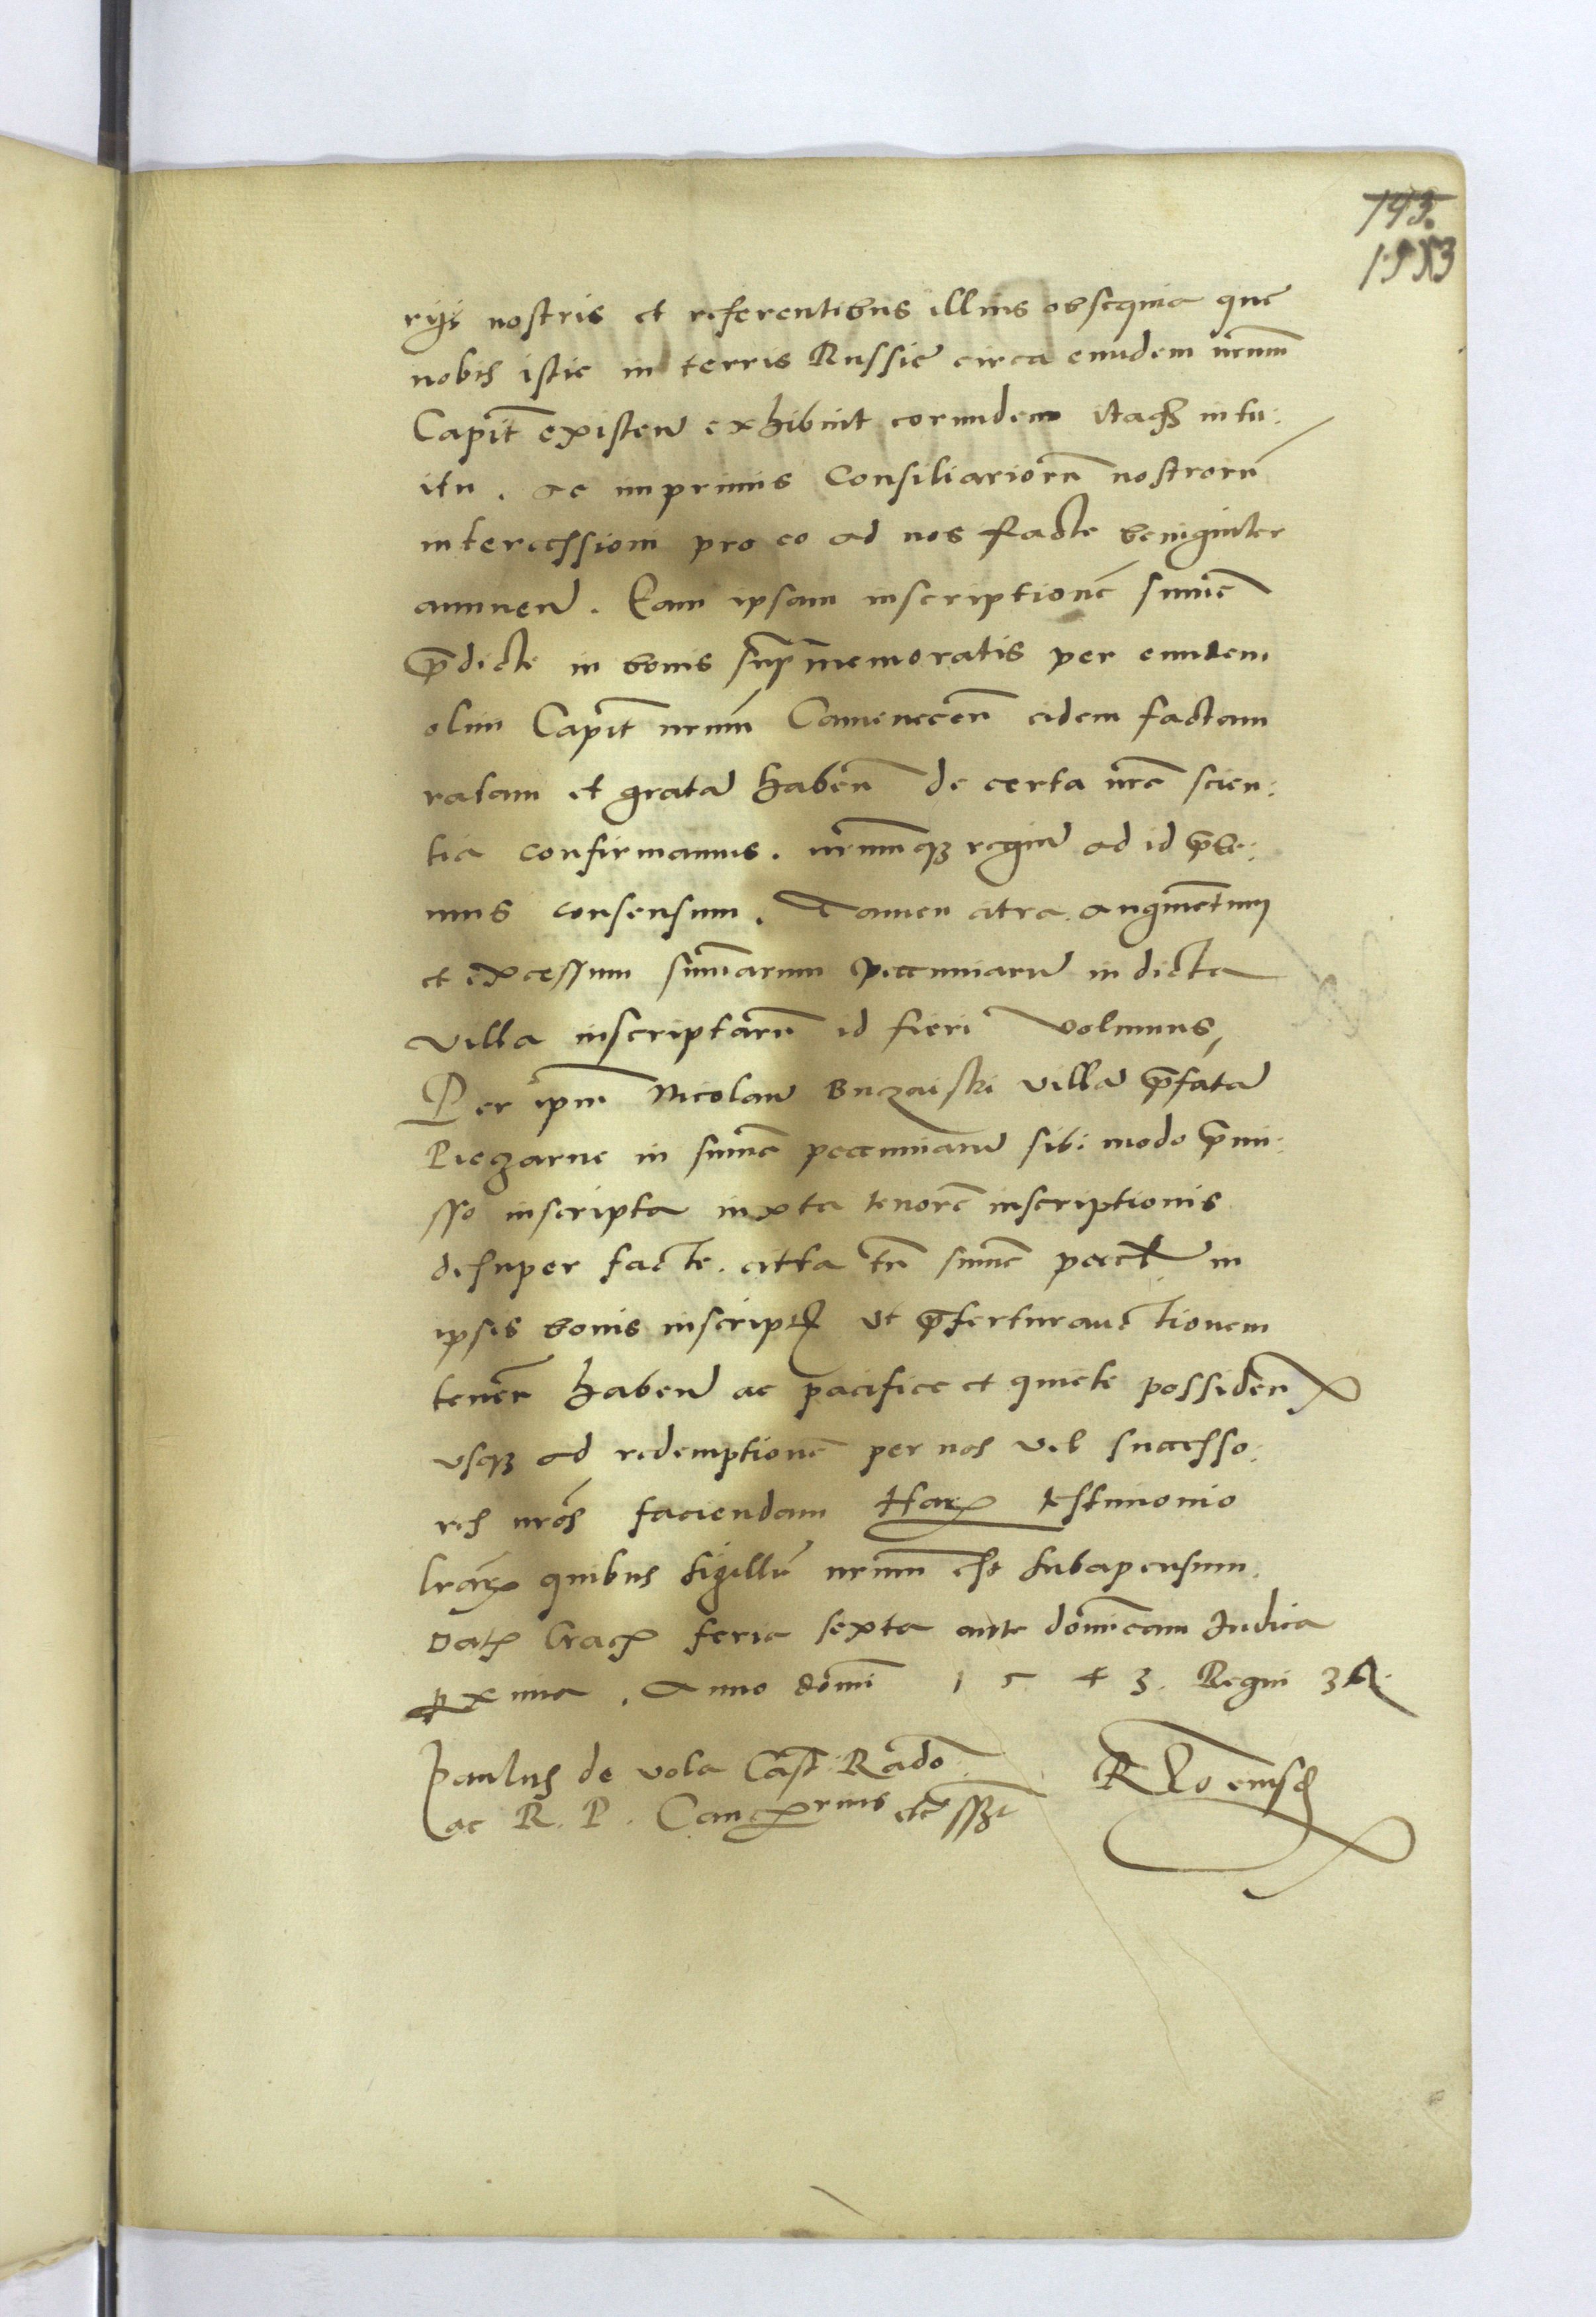 143.
153
rijs nostris et referentibus illius obsequia que
nobis istic in terris Russie circa eundem nrum
Capit existen exhibuit eorundem itaq intu:
itu. ac imprimis Consiliarioru nostroru
intercessioni pro eo ad nos facte benigniter
annuen. Eam ipsam inscriptione summe
predicte in bonis supmemoratis per eundem
olim Capit nrum Camenecen eidem factam
ratam et grata haben de certa nre scien:
tia confirmamus. nrumq regiu ad id prebe:
mus consensum. Tamen citra augmentum
et excessum summarum pecuniaru in dicta
villa inscriptaru id fieri volumus,
Per ipm Nicolau Buczaiski villa prefata
Pieczarne in summe pecuniaru sibi modo premi:
sso inscripta iuxta tenore inscriptionis
desuper facte. citra tn summe in
ipsis bonis inscript ut prefertur auctionem
tenen haben ac pacifice et quiete possiden
usq ad redemptione per nos vel successo:
res nros faciendam Harum testimonio
lrarum quibus sigillu nrum est subapensum.
Dat Crac feria sexta ante dominicam Iudica
proxima. Anno domi 1543. Regni
Paulus de vola Cast Rado.
ac R. P. Cancrius sst